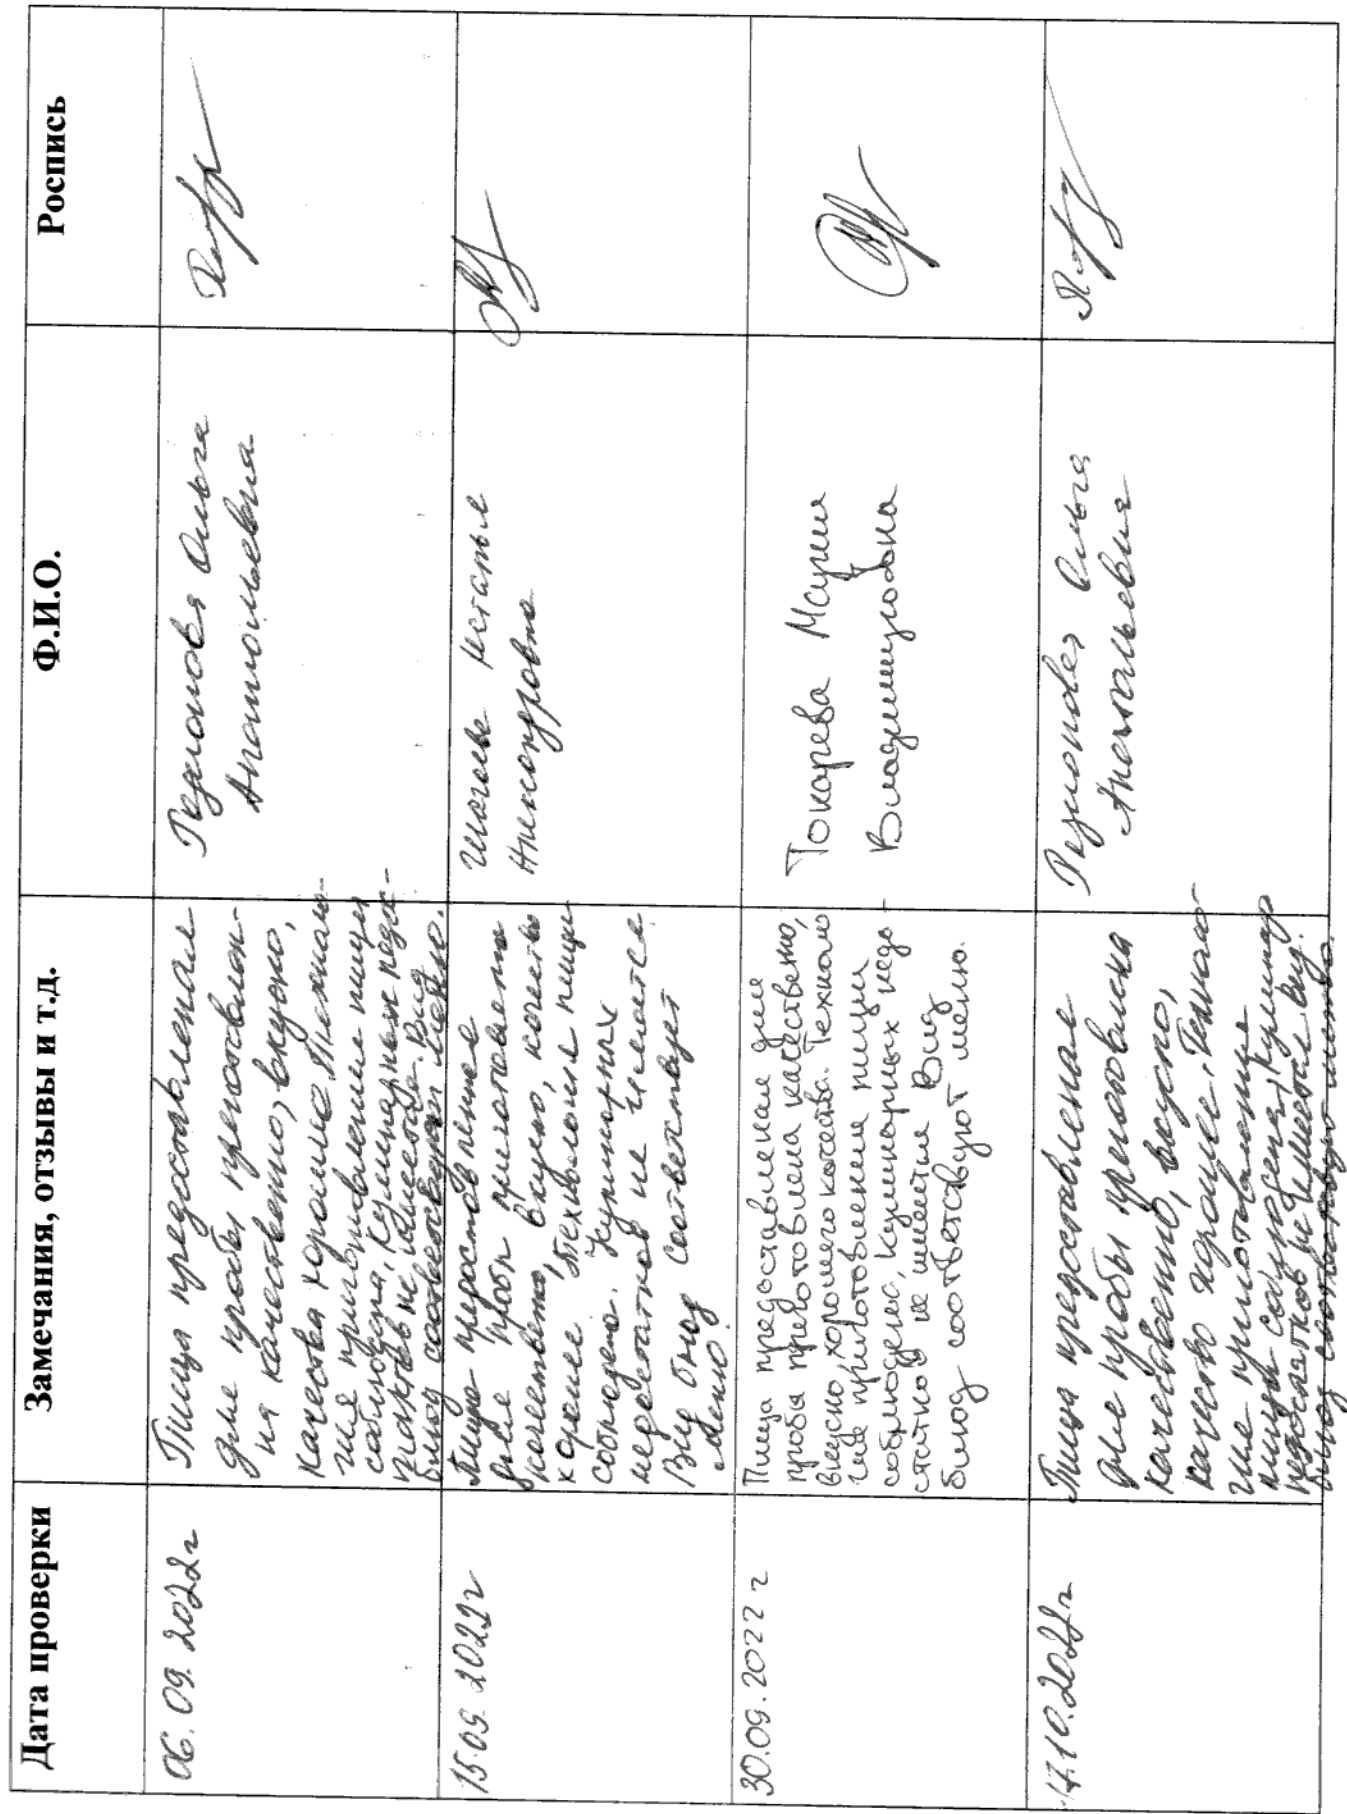 Дата проверки
Замечания, отзывы и т.д.
Ф.И.О.
Роспись
06.09.2022г
Пища предоставленая
для пробы приготовлен-
на качественно, вкусно,
качества хорошие. Техноло-
гия приготовления пищи
соблюдена, Кулинарных недо-
статков не имеется. Вид
блюд соответствует меню.
Ольга
Анатольевна
15.09.2022г
Пища предоставленная
для пробы приготовлена
качественно, вкусно, качество
хорошее, технология пищи
соблюдена. Кулинарных
недостатков не имеется
Вид блюд соответствует
меню.
Наталья
Александровна
30.09.2022г
Пища предоставленая для
пробы приготовлена качественно,
вкусно, хорошего качества. Техноло
гия приготовления пищи
соблюдена, Кулинарных недо
статков не имеется Вид
блюд соответствуют меню.
Токарева Мария
Владимировна
17.10.2022г
Пища предоставленая
для пробы приготовлена
качественно, вкусно,
качество хорошее, Техноло-
гия приготовления
пищи соблюдена, Кулинар
недостатков не имеется Вид.
блюд соответствует меню
Ольга
Анатольевна